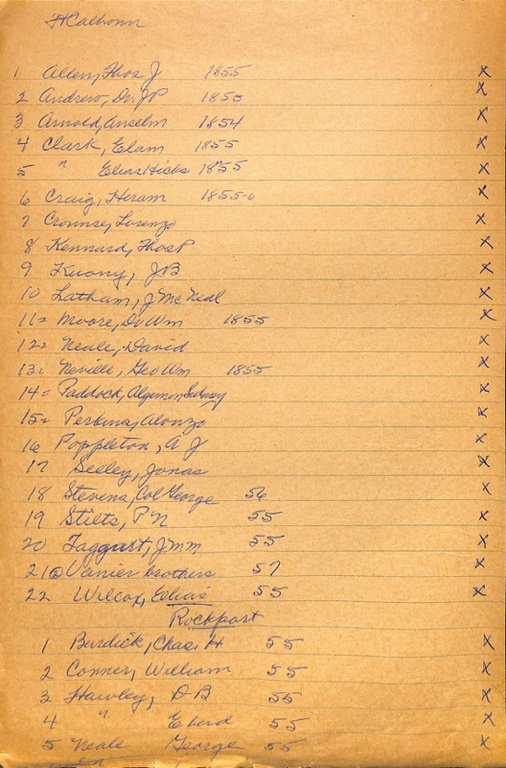 Ft Calhoun
1 Allen, Thos J 1855 x
2 Andrew, Dr. J P 1855 x
3 Arnold, Anselm 1854 x
4 Clark, Elam 1855 x
5 " Elias Hicks 1855 x
6 Craig, Hiram 1855-6 x
7 Crounse, Lorenzo x
8 Kennard, Thos P x
9 Kuony, J B x
10 Latham, J McNeal x
11= Moore, Dr Wm 1855 x
12= Neale, David x
13= Neville, Geo Wm 1855 x
14= Paddock, Algernon Sidney x
15= Perkins, Alonzo x
16 Poppleton, A J x
17 Seeley, Jonas x
18 Stevens, Col George 56 x
19 Stilts, P N 55 x
20 Taggart, J M M 55 x
21 Vanier brothers 57 x
22 Wilcox, Elias 55 x
Rockport
1 Burdick, Chas. H 55 x
2 Conner, William 55 x
3 Hawley, D B 55 x
4 " 55 x
5 Neale George 55 x